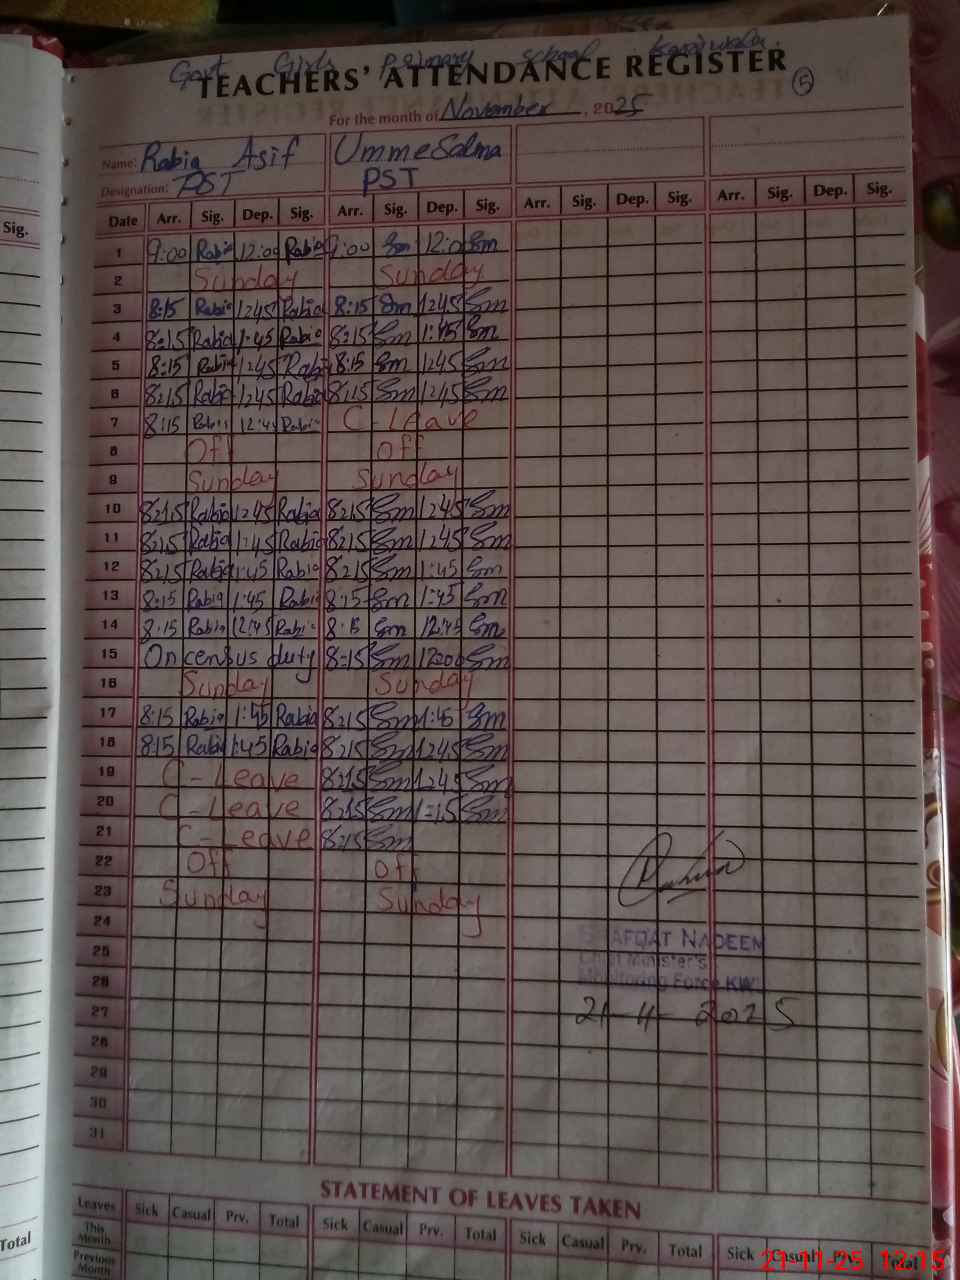 Govt Girls Primary School
TEACHERS' ATTENDANCE REGISTER 5
For the month of November, 2025
Name: Rabia Asif UmmeSalma
Designation: PST PST
Sig. Date Arr. Sig. Dep. Sig. Arr. Sig. Dep. Sig. Arr. Sig. Dep. Sig. Arr. Sig. Dep. Sig.
1 9:00 Rabia 12:00 Rabia 9:00 Sm 12:00 Sm
2 Sunday Sunday
3 8:15 Rabia 1:45 Rabia 8:15 Sm 1:45 Sm
4 8:15 Rabia 1:45 Rabia 8:15 Sm 1:45 Sm
5 8:15 Rabia 1:45 Rabia 8:15 Sm 1:45 Sm
6 8:15 Rabia 1:45 Rabia 8:15 Sm 1:45 Sm
7 8:15 Rabia 12:45 Rabia C-Leave
8 Off Off
9 Sunday Sunday
10 8:15 Rabia 1:45 Rabia 8:15 Sm 1:45 Sm
11 8:15 Rabia 1:45 Rabia 8:15 Sm 1:45 Sm
12 8:15 Rabia 1:45 Rabia 8:15 Sm 1:45 Sm
13 8:15 Rabia 1:45 Rabia 8:15 Sm 1:45 Sm
14 8:15 Rabia 12:45 Rabia 8:15 Sm 12:45 Sm
15 On census duty 8:15 Sm 12:00 Sm
16 Sunday Sunday
17 8:15 Rabia 1:45 Rabia 8:15 Sm 1:45 Sm
18 8:15 Rabia 1:45 Rabia 8:15 Sm 1:45 Sm
19 C-Leave 8:15 Sm 1:45 Sm
20 C-Leave 8:15 Sm 1:15 Sm
21 C-Leave 8:15 Sm
22 Off Off
23 Sunday Sunday
24
SHAFQAT NADEEM
25
Chief Minister's
26 Monitoring Force KWL
27 21-4-2025
28
29
30
31
STATEMENT OF LEAVES TAKEN
Leaves Sick Casual Prv. Total Sick Casual Prv. Total Sick Casual Prv. Total Sick Casual Prv. Total
This Month
Total Previous Month
21-11-25 12:15